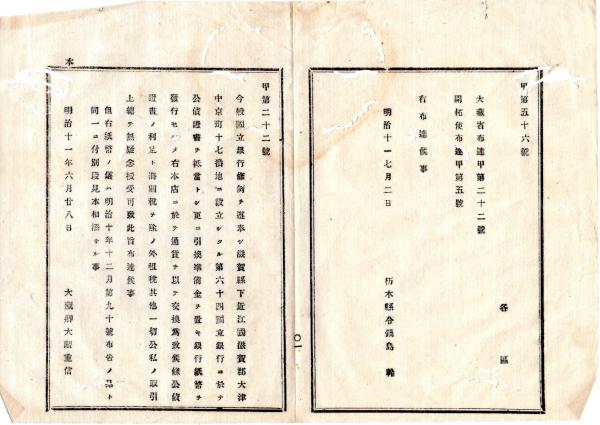 甲第五十六號
各區
大藏省布達甲第二十二號
開拓使布達甲第五號
右布達候事
明治十一七月二日
栃木縣令鍋島幹
〇一
甲第二十二號
今般國立銀行條例ヲ遵奉シ滋賀縣下近江國滋賀郡大津
中京町十七番地ニ設立シタル第六十四國立銀行ニ於テ
公債證書ヲ抵當トシ更ニ引換準備金ヲ置キ銀行紙幣ヲ
發行セシメ右本店ニ於テ通貨ヲ以テ交換爲致候條公債
證書ノ利足ト海關稅ヲ除ノ外租稅其他一切公私ノ取引
上總テ無疑念授受可致此旨布達候事
但右紙幣ノ儀ハ明治十年十二月第九十號布告ノ見本ト
同一ニ付別段見本相添ヘサル事
明治十一年六月廿八日
大藏卿大隈重信
本